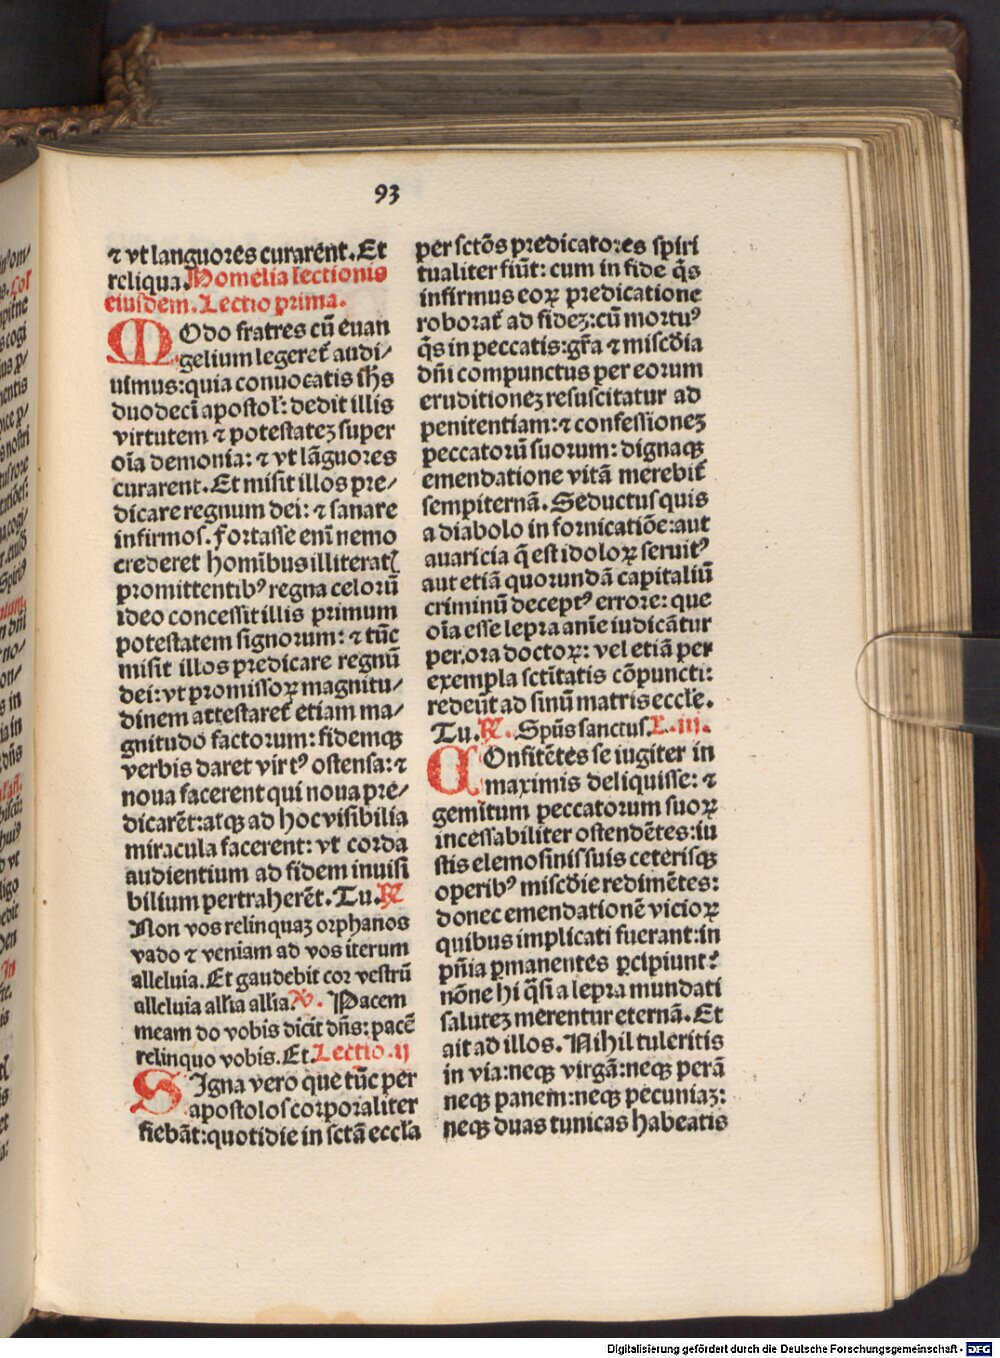 93
⁊ vt languores curarẽnt. Et
reliqua. Homelia lectionis
eiusdem. Lectio prima.
MOdo fratres cũ euan
gelium legeret̃ audi/
uimus: quia conuocatis ih̃s
duodecĩ apostol': dedit illis
virtutem ⁊ potestateꝫ super
oĩa demonia: ⁊ vt lãguores
curarent. Et misit illos pre/
dicare regnum dei: ⁊ sanare
infirmos. Fortasse enĩ nemo
crederet hominibus illiterat̃
promittentibꝰ regna celorũ
ideo concessit illis primum
potestatem signorum: ⁊ tũc
misit illos predicare regnũ
dei: vt promissoꝝ magnitu/
dinem attestaret̃ etiam ma/
gnitudo factorum: fidemqꝫ
verbis daret virtꝰ ostensa: ⁊
noua facerent qui noua pre/
dicarẽt: atqꝫ ad hoc visibilia
miracula facerent: vt corda
audientium ad fidem inuisi
bilium pertraherẽt. Tu. ℟
Non vos relinquaꝫ orphanos
vado ⁊ veniam ad vos iterum
alleluia. Et gaudebit cor vestrũ
alleluia all'ia all'ia ℣. Pacem
meam do vobis dicit dñs: pacẽ
relinquo vobis. Et. Lectio .ij
SIgna vero que tũc per
apostolos corporaliter
fiebãt: quotidie in sctã eccl'a
per sctõs predicatores spiri
tualiter fiũt: cum in fide q̃s
infirmus eoꝝ predicatione
roborat̃ ad fideꝫ: cũ mortuꝰ
q̃s in peccatis: gr̃a ⁊ misc̃dia
dñi compunctus per eorum
eruditioneꝫ resuscitatur ad
penitentiam: ⁊ confessioneꝫ
peccatorũ suorum: dignaqꝫ
emendatione vitã merebit̃
sempiternã. Seductus quis
a diabolo in fornicatiõe: aut
auaricia q̃ est idoloꝝ seruitꝰ
aut etiã quorundã capitaliũ
criminũ deceptꝰ errore: que
oĩa esse lepra anĩe iudicãtur
per. ora doctoꝝ: vel etiã per
exempla sctĩtatis cõpuncti:
redeũt ad sinũ matris eccl'e.
Tu. ℟. Spũs sanctus. L. iij.
COnfitẽtes se iugiter in
maximis deliquisse: ⁊
gemitum peccatorum suoꝝ
incessabiliter ostendẽtes: iu
stis elemosinis suis ceterisqꝫ
operibꝰ misc̃die redimẽtes:
donec emendationẽ vicioꝝ
quibus implicati fuerant: in
pñia ꝑmanentes ꝑcipiunt:
nõne hi q̃si a lepra mundati
saluteꝫ merentur eternã. Et
ait ad illos. Nihil tuleritis
in via: neqꝫ virgã: neqꝫ perã
neqꝫ panem: neqꝫ pecuniaꝫ:
neqꝫ duas tunicas habeatis
Digitalisierung gefördert durch die Deutsche Forschungsgemeinschaft - DFG